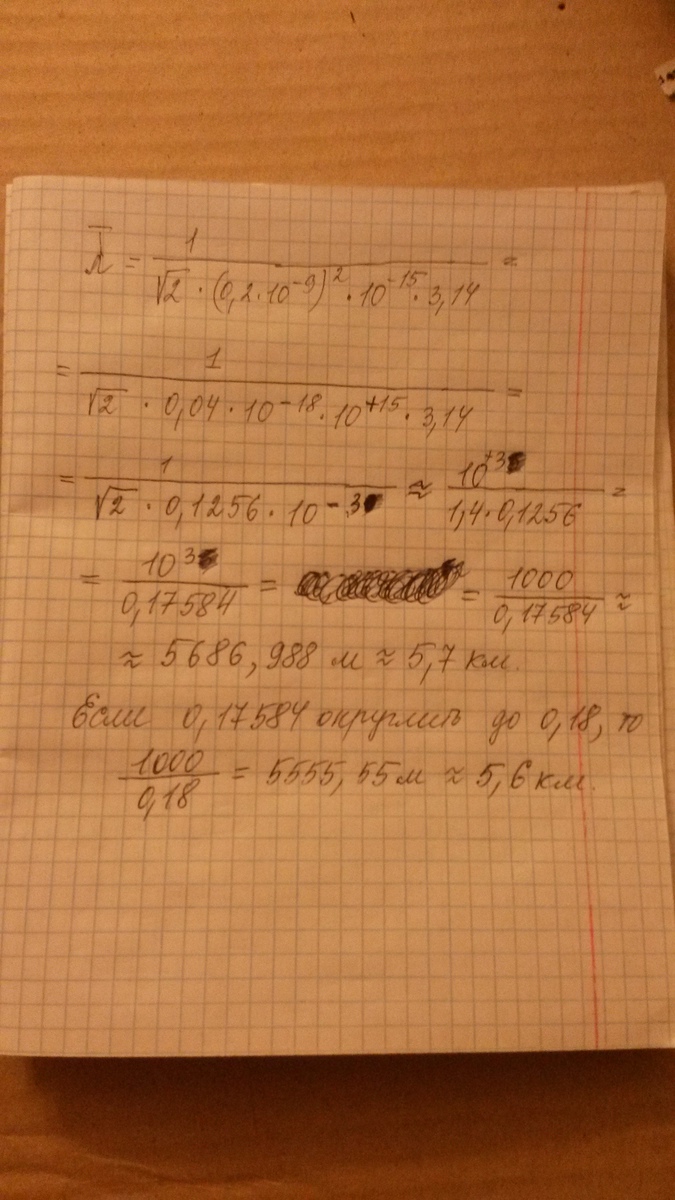 λ̅ = 1 / (√2 · (0,2·10⁻⁹)² · 10⁻¹⁵ · 3,14) =
= 1 / (√2 · 0,04 · 10⁻¹⁸ · 10⁺¹⁵ · 3,14) =
= 1 / (√2 · 0,1256 · 10⁻³) ≈ 10⁺³ / (1,4 · 0,1256) =
= 10³ / 0,17584 = = 1000 / 0,17584 ≈
≈ 5686,988 м ≈ 5,7 км.
Если 0,17584 округлить до 0,18, то
1000 / 0,18 = 5555,55 м ≈ 5,6 км.